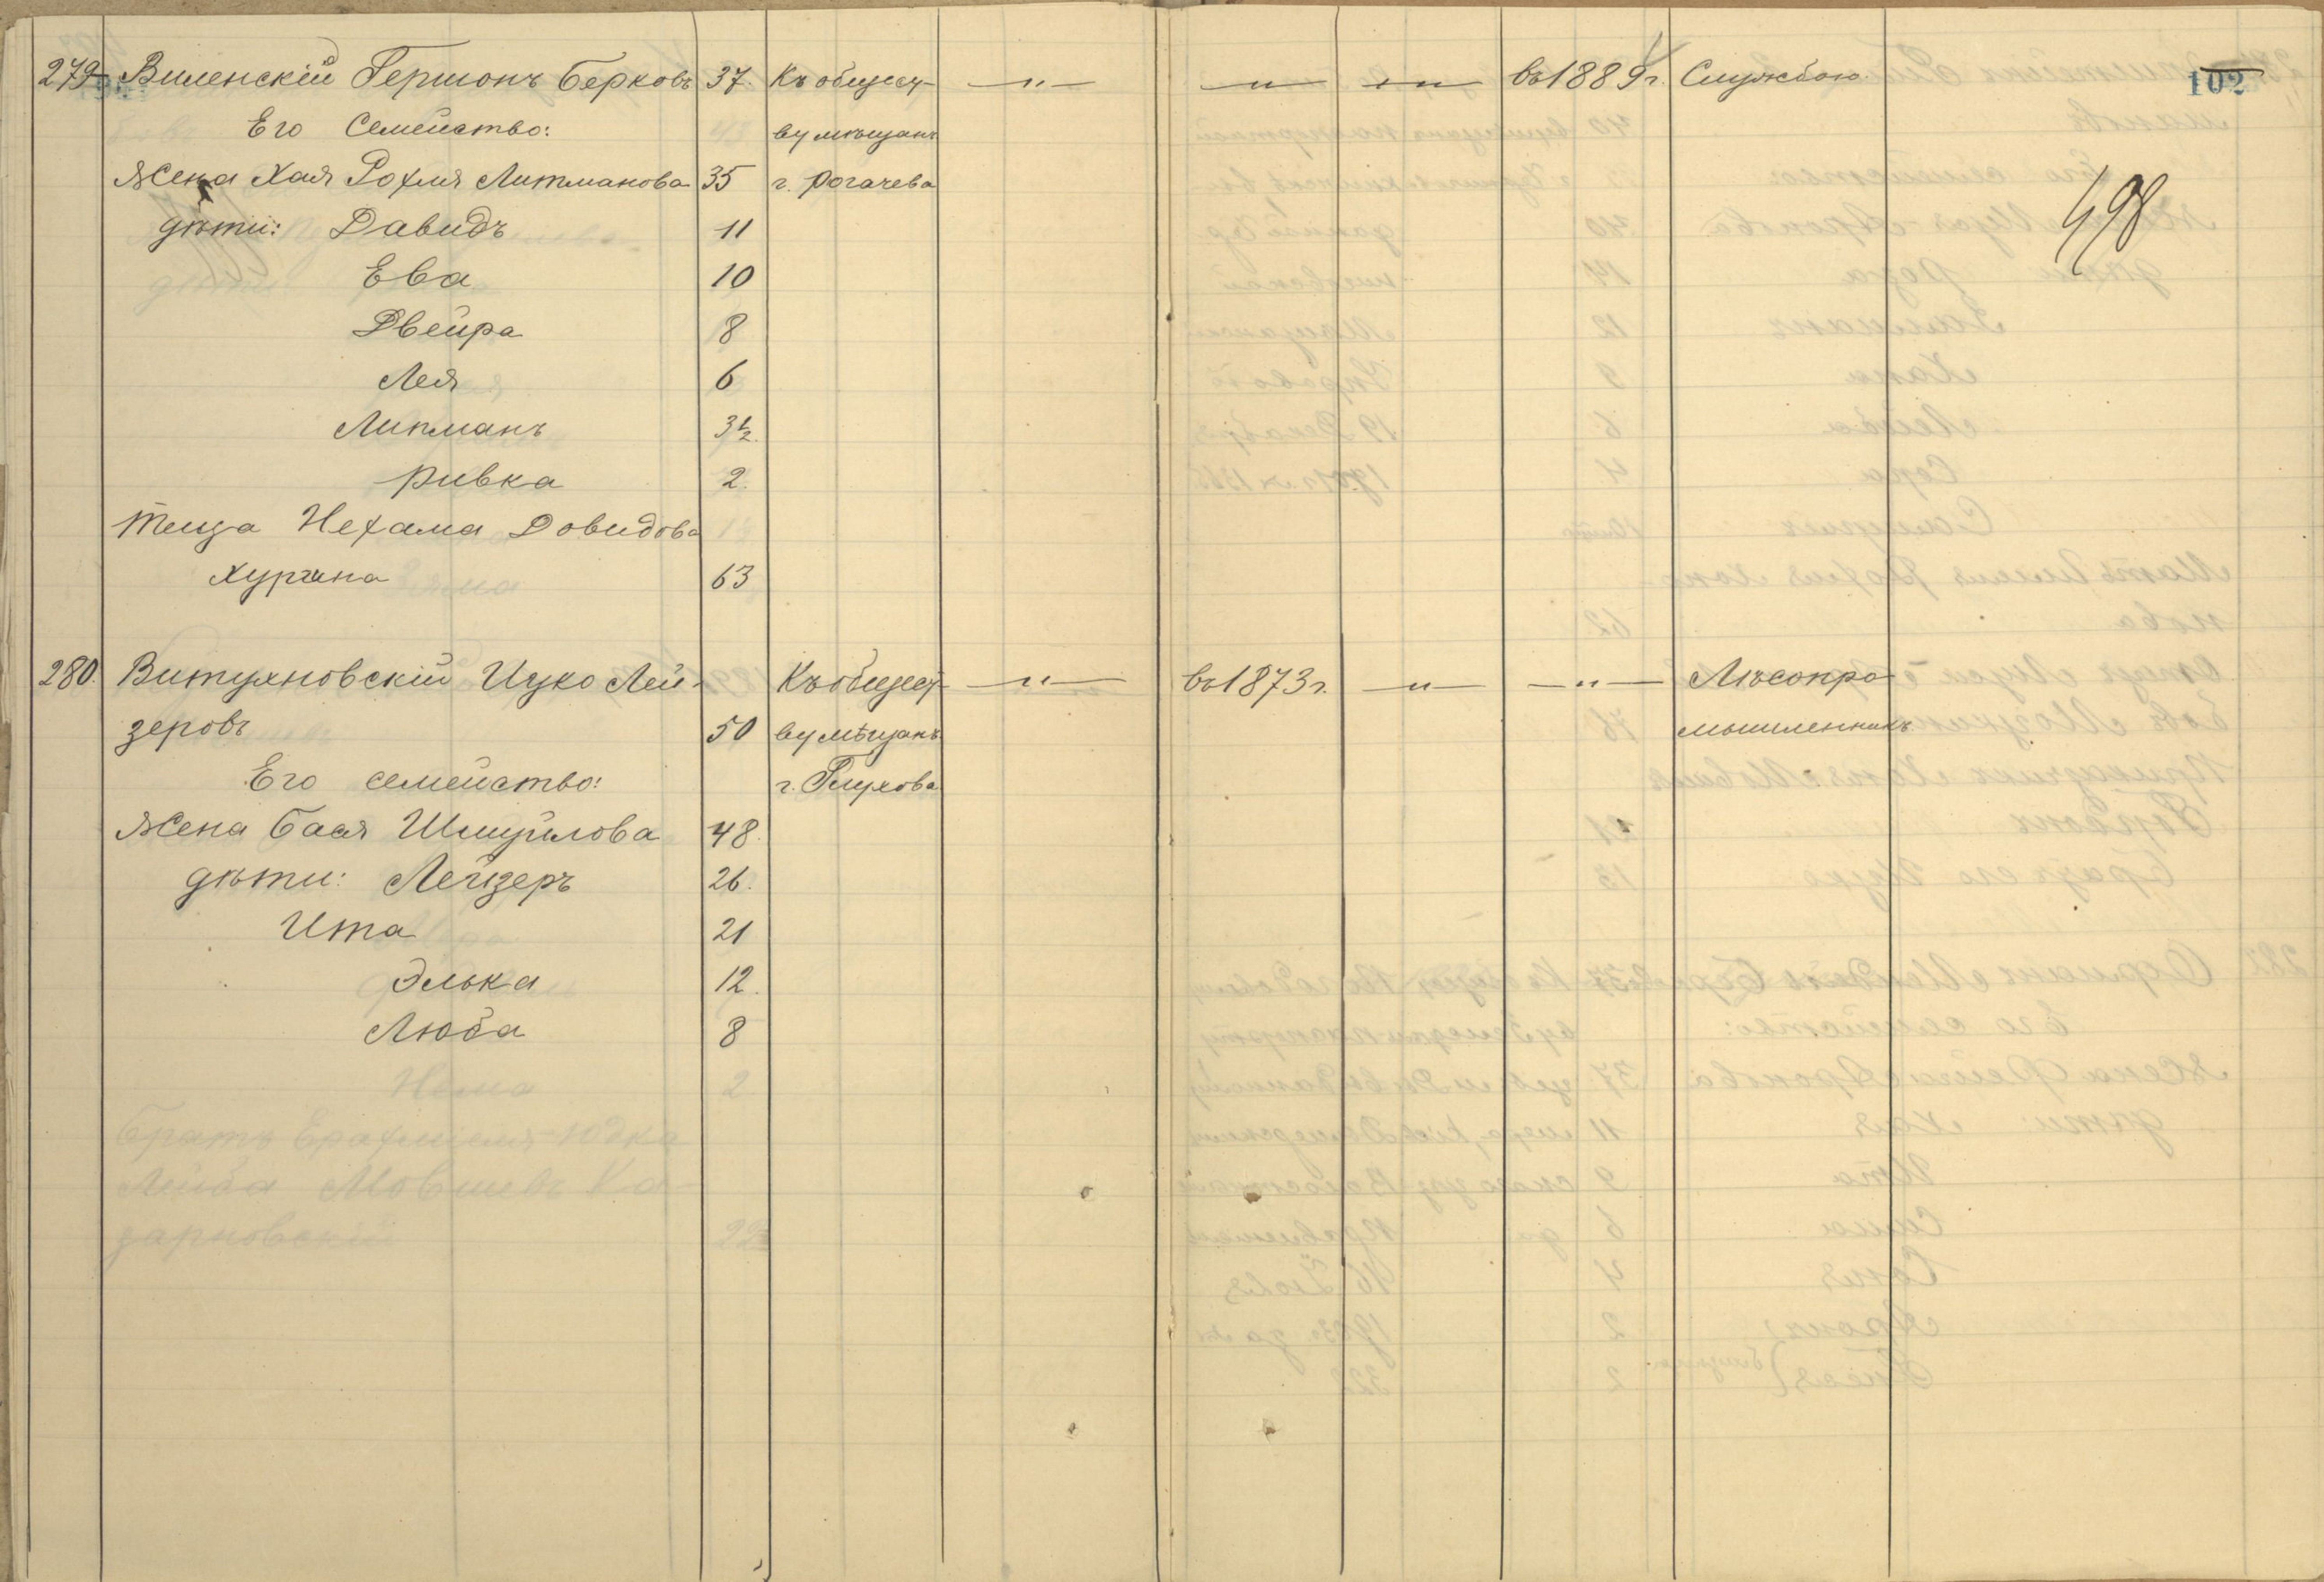 279 Виленскій Гершонъ Берковъ 37. Къ общест- —„— —„— —„— въ 1889 г. Службою. 102
Его Семейство: ву мѣщанъ
Жена Хая Рохля Литманова 35 г. Рогачева 498
дѣти: Давидъ 11
Ева 10
Двейра 8
Лея 6
Липманъ 3½.
Ривка 2.
Теща Нехама Довидова
Хургина 63
280. Витухновскій Ицко Лей- Къ общест- —„— въ 1873 г. —„— —„— Лѣсопро-
зеровъ 50 ву мѣщанъ мышленникъ
Его семейство: г. Глухова
Жена Бася Шмуйлова 48.
дѣти: Лейзеръ 26.
Ита 21
Элька 12.
Люба 8